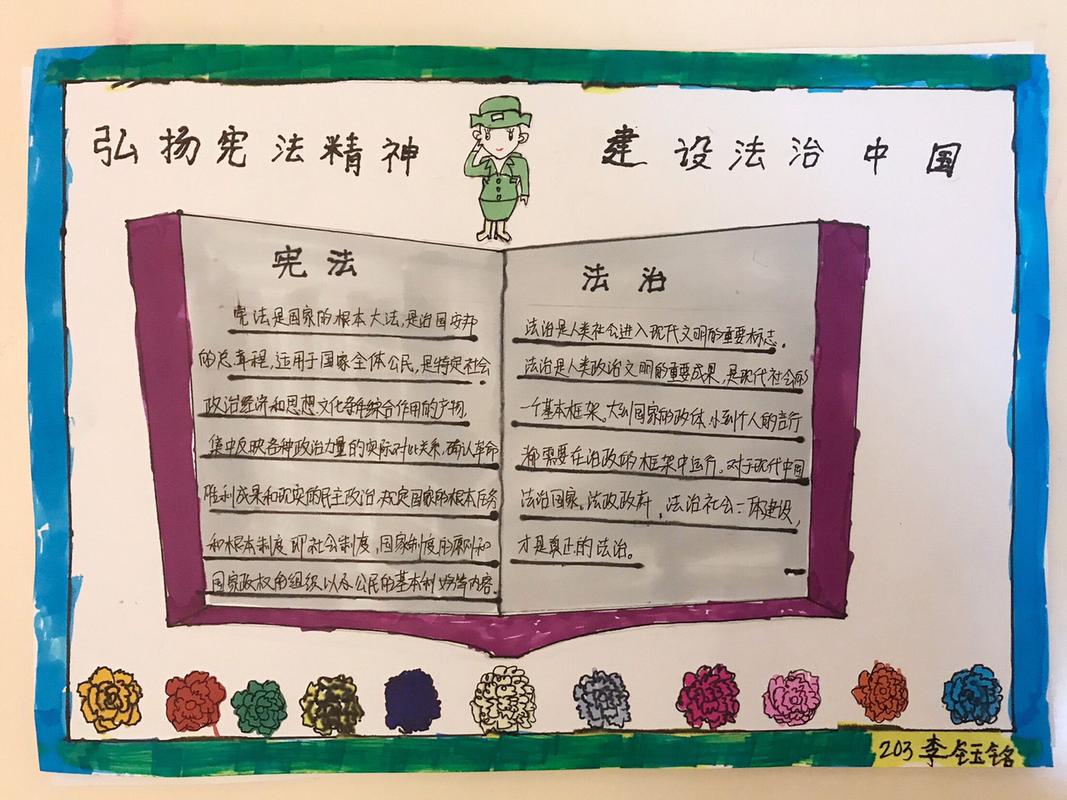 弘扬宪法精神
建设法治中国
宪法
宪法是国家的根本大法,是治国安邦
的总章程,适用于国家全体公民,是特定社会
政治经济和思想文化条件综合作用的产物,
集中反映各种政治力量的实际对比关系,确认革命
胜利成果和现实的民主政治,规定国家的根本任务
和根本制度,即社会制度,国家制度的原则和
国家政权的组织以及公民的基本利义务等内容.
法治
法治是人类社会进入现代文明的重要标志。
法治是人类政治文明的重要成果,是现代社会的
一个基本框架。大到国家的政体,小到个人的言行
都需要在治政的框架中运行。对于现代中国
法治国家。法政政府,法治社会一体建设,
才是真正的法治。
203李钰铭